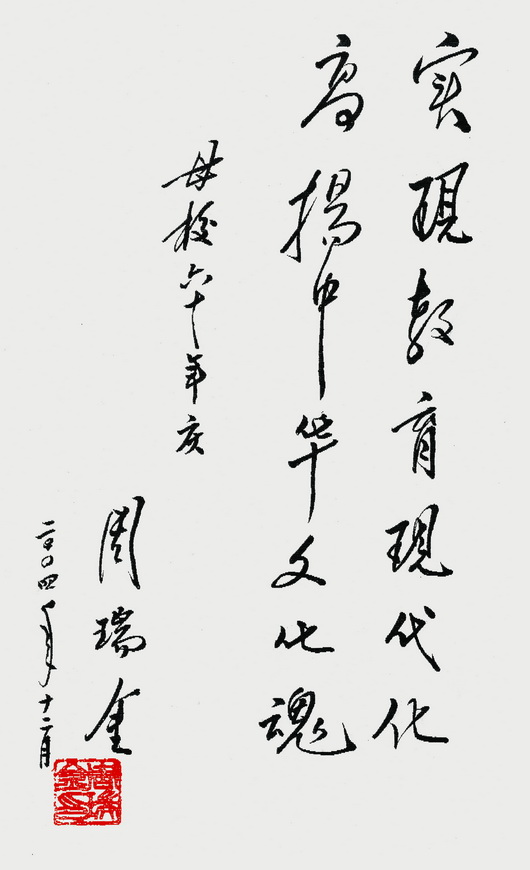 实现教育现代化
高扬中华文化魂
母校六十年庆
周瑞金
二〇〇四年十二月